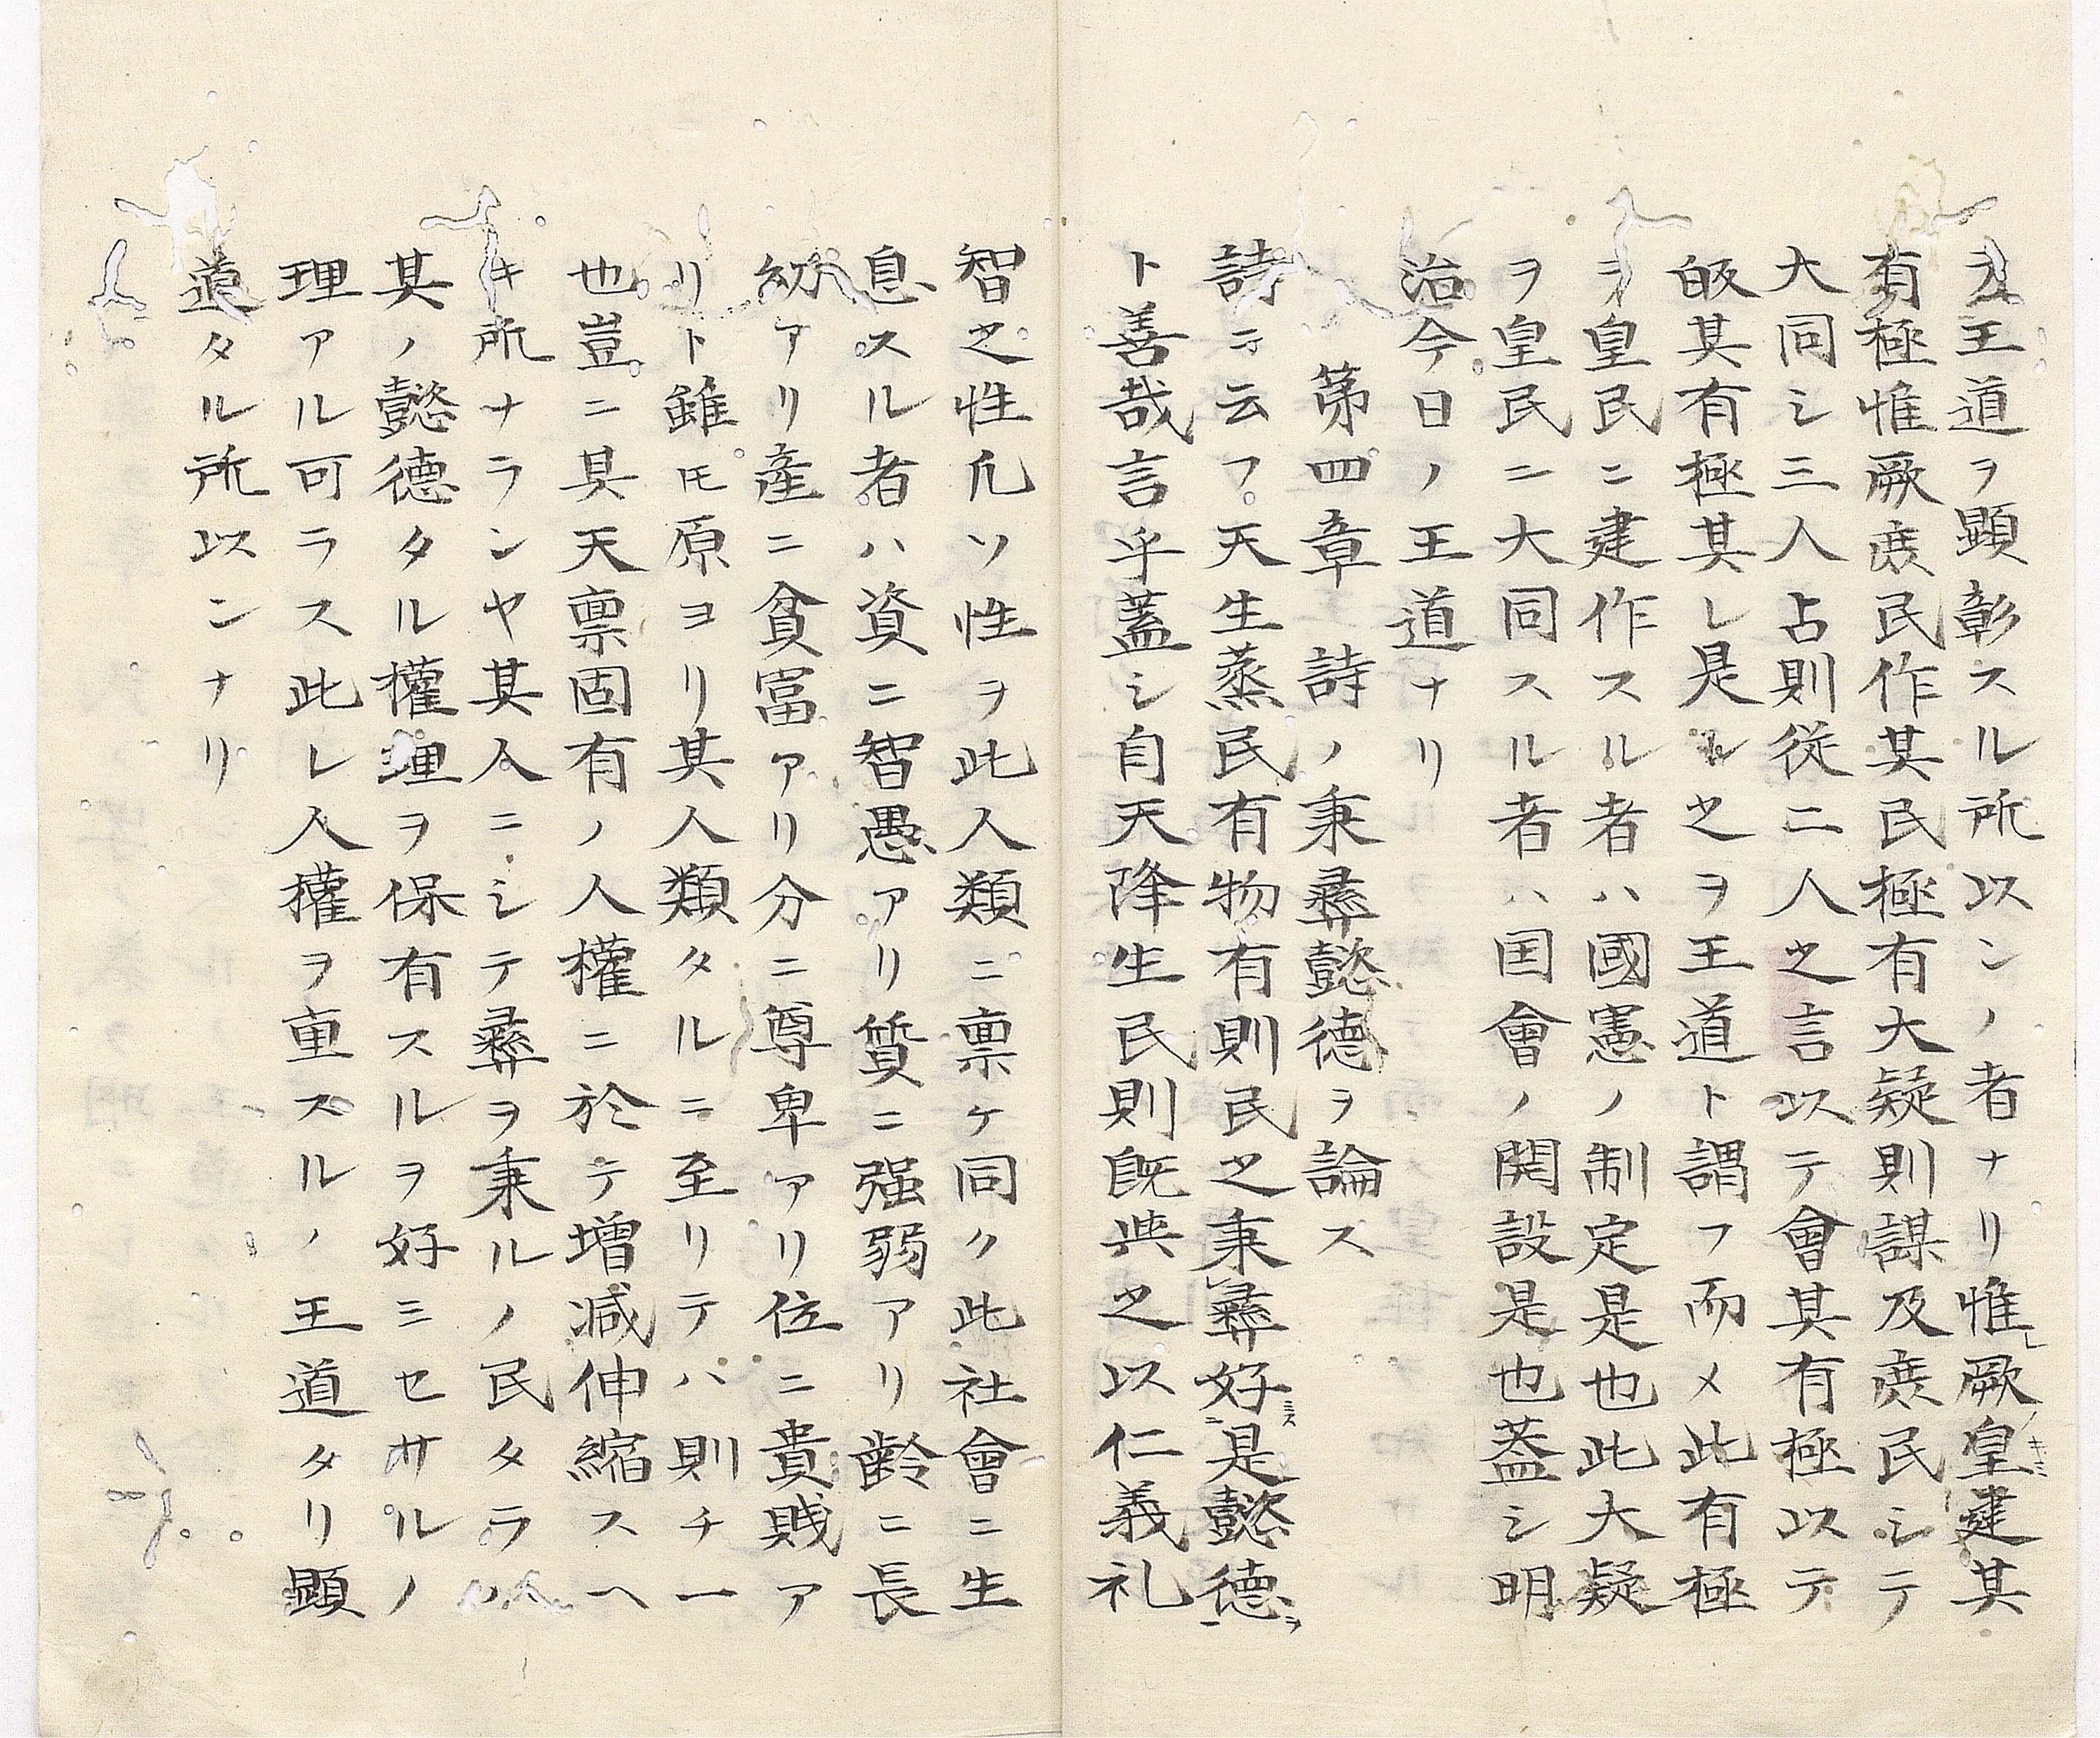 ヲ王道ヲ顕彰スル所以ンノ者ナリ惟厥皇建其
有極惟厥庶民作其民極有大疑則謀及庶民シテ
大同シ三人占則従二人之言以テ會其有極以テ
皈其有極其レ是ル之ヲ王道ト謂フ而メ此有極
ヲ皇民ニ建作スル者ハ國憲ノ制定是也此大疑
ヲ皇民ニ大同スル者ハ囯會ノ開設是也蓋シ明
治今日ノ王道ナリ
第四章　詩ノ秉彛懿徳ヲ論ス
詩ニ云フ天生蒸民有物有則民之秉彛好是懿徳
ト善哉言乎蓋シ自天降生民則既與之以仁義礼
智之性凡ソ性ヲ此人類ニ禀ケ同ク此社會ニ生
息スル者ハ資ニ智愚アリ質ニ强弱アリ齢ニ長
幼アリ産ニ貧冨アリ分ニ尊卑アリ位ニ貴賎ア
リト雖モ原ヨリ其人類タルニ至リテハ則チ一
也豈ニ具天禀固有ノ人權ニ於テ増减伸縮スヘ
キ所ナランヤ其人ニシテ彛ヲ秉ルノ民タラハ
其ノ懿徳タル權理ヲ保有スルヲ好ミセサルノ
理アル可ラス此レ人權ヲ重スルノ王道タリ顕
道タル所以ンナリ